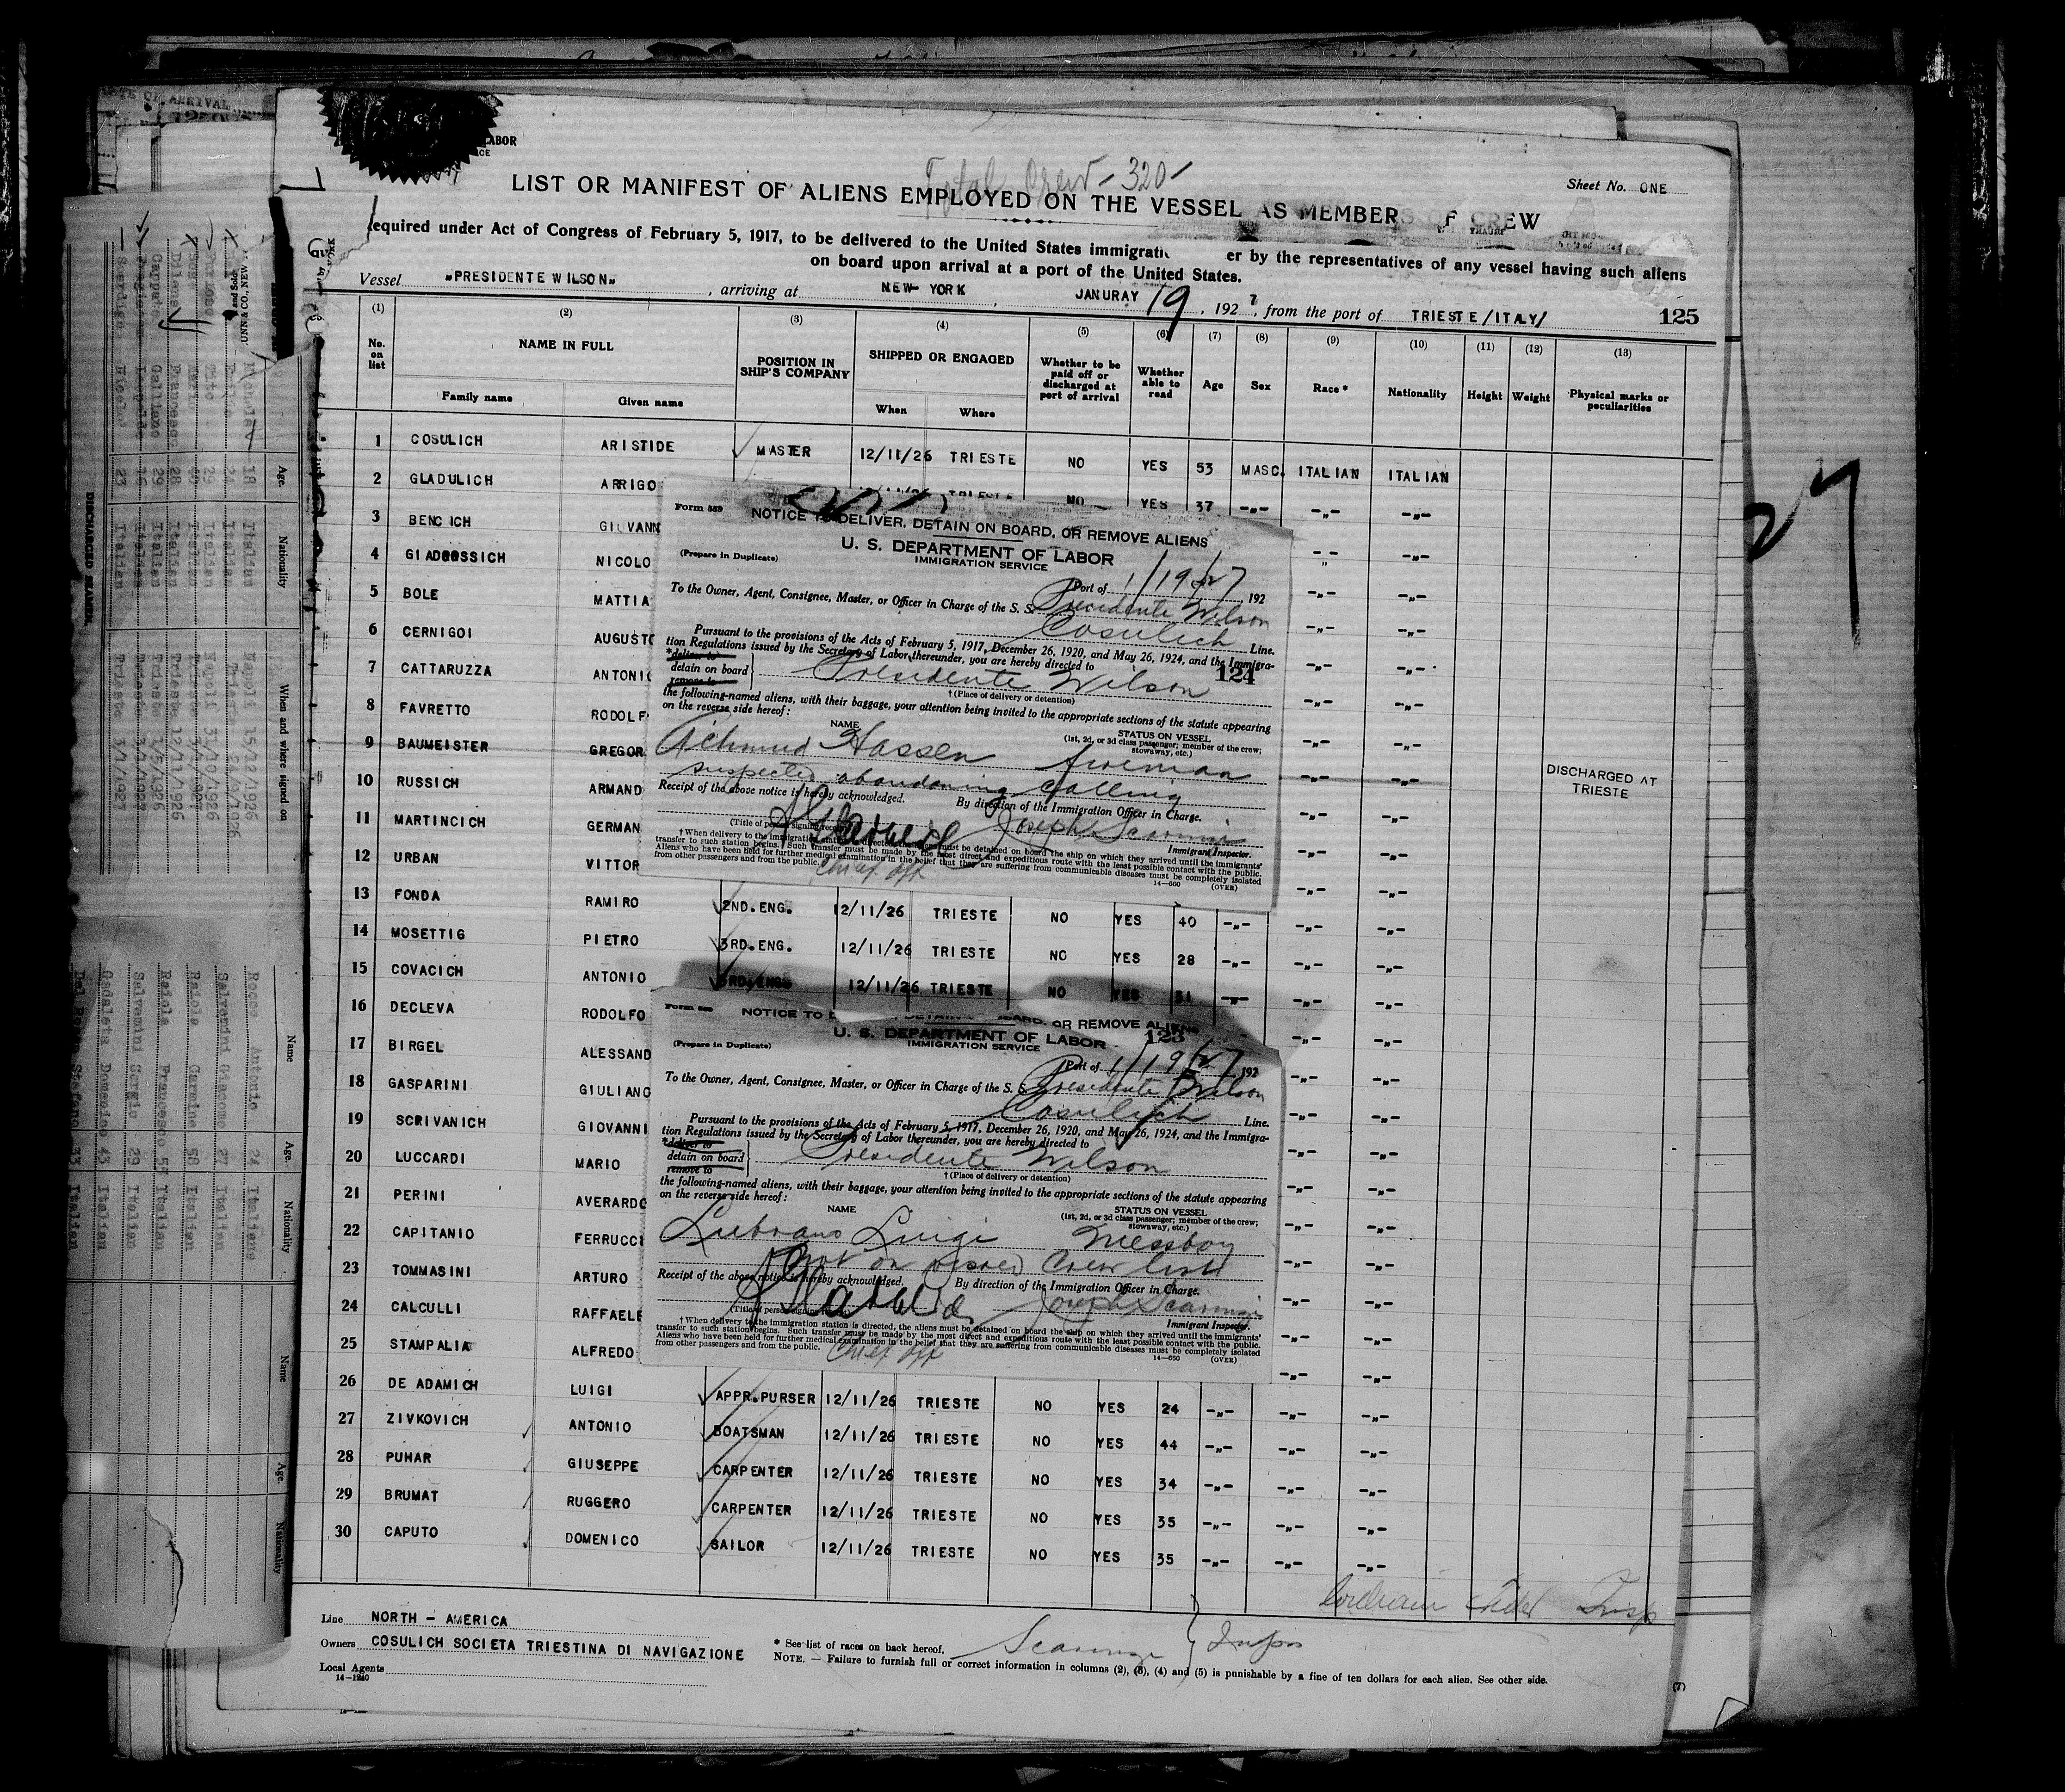 LABOR
Total Crew - 320 -
Sheet No. ONE
LIST OR MANIFEST OF ALIENS EMPLOYED ON THE VESSEL AS MEMBERS OF CREW
equired under Act of Congress of February 5, 1917, to be delivered to the United States immigrati er by the representatives of any vessel having such aliens
on board upon arrival at a port of the United States.
Vessel "PRESIDENTE WILSON", arriving at NEW YORK, JANURAY 19, 1927, from the port of TRIESTE/ITALY/ 125
(1) (2) (3) (4) (5) (6) (7) (8) (9) (10) (11) (12) (13)
No. on list NAME IN FULL POSITION IN SHIP'S COMPANY SHIPPED OR ENGAGED Whether to be paid off or discharged at port of arrival Whether able to read Age Sex Race* Nationality Height Weight Physical marks or peculiarities
Family name Given name When Where
1 COSULICH ARISTIDE MASTER 12/11/26 TRIESTE NO YES 53 MASC. ITALIAN ITALIAN
2 GLADULICH ARRIGO NO YES 37 -"- -"- -"-
3 BENCICH GIOVANN -"- -"-
4 GIADROSSICH NICOLO -"- -"-
5 BOLE MATTIA -"- -"-
6 CERNIGOI AUGUSTO -"- -"-
7 CATTARUZZA ANTONIO -"- -"-
8 FAVRETTO RODOLF -"- -"-
9 BAUMEISTER GREGOR -"- -"- DISCHARGED AT TRIESTE
10 RUSSICH ARMAND -"- -"-
11 MARTINCICH GERMAN -"- -"-
12 URBAN VITTOR -"- -"-
13 FONDA RAMIRO 2ND.ENG. 12/11/26 TRIESTE NO YES 40 -"- -"- -"-
14 MOSETTIG PIETRO 3RD.ENG. 12/11/26 TRIESTE NO YES 28 -"- -"- -"-
15 COVACICH ANTONIO 3RD.ENG. 12/11/26 TRIESTE NO YES 31 -"- -"- -"-
16 DECLEVA RODOLFO -"- -"-
17 BIRGEL ALESSAND -"- -"-
18 GASPARINI GIULIANO -"- -"-
19 SCRIVANICH GIOVANNI -"- -"-
20 LUCCARDI MARIO -"- -"-
21 PERINI AVERARDO -"- -"-
22 CAPITANIO FERRUCCI -"- -"-
23 TOMMASINI ARTURO -"- -"-
24 CALCULLI RAFFAELE -"- -"-
25 STAMPALIA ALFREDO -"- -"-
26 DE ADAMICH LUIGI APPR.PURSER 12/11/26 TRIESTE NO YES 24 -"- -"- -"-
27 ZIVKOVICH ANTONIO BOATSMAN 12/11/26 TRIESTE NO YES 44 -"- -"- -"-
28 PUHAR GIUSEPPE CARPENTER 12/11/26 TRIESTE NO YES 34 -"- -"- -"-
29 BRUMAT RUGGERO CARPENTER 12/11/26 TRIESTE NO YES 35 -"- -"- -"-
30 CAPUTO DOMENICO SAILOR 12/11/26 TRIESTE NO YES 35 -"- -"- -"-
Form 559 NOTICE TO DELIVER, DETAIN ON BOARD, OR REMOVE ALIENS
U. S. DEPARTMENT OF LABOR
IMMIGRATION SERVICE
(Prepare in Duplicate)
Port of 1/19/27 192
To the Owner, Agent, Consignee, Master, or Officer in Charge of the S. S. Presidente Wilson
Cosulich Line.
Pursuant to the provisions of the Acts of February 5, 1917, December 26, 1920, and May 26, 1924, and the Immigra-
tion Regulations issued by the Secretary of Labor thereunder, you are hereby directed to
*deliver to
detain on board
remove to
Presidente Wilson 124
†(Place of delivery or detention)
the following-named aliens, with their baggage, your attention being invited to the appropriate sections of the statute appearing
on the reverse side hereof:
NAME STATUS ON VESSEL
(1st, 2d, or 3d class passenger; member of the crew;
stowaway, etc.)
Achmud Hassen fireman
suspected abandoning calling
Receipt of the above notice is hereby acknowledged. By direction of the Immigration Officer in Charge.
Joseph Scaringi
(Title of person signing receipt) Immigrant Inspector.
†When delivery to the immigration station is directed, the aliens must be detained on board the ship on which they arrived until the immigrants'
transfer to such station begins. Such transfer must be made by the most direct and expeditious route with the least possible contact with the public.
Aliens who have been held for further medical examination in the belief that they are suffering from communicable diseases must be completely isolated
from other passengers and from the public. Chief off
14—660 (OVER)
Form 559 NOTICE TO D DETAIN BOARD, OR REMOVE ALIENS
U. S. DEPARTMENT OF LABOR 123
IMMIGRATION SERVICE
(Prepare in Duplicate)
Port of 1/19/27 192
To the Owner, Agent, Consignee, Master, or Officer in Charge of the S. S. Presidente Wilson
Cosulich Line.
Pursuant to the provisions of the Acts of February 5, 1917, December 26, 1920, and May 26, 1924, and the Immigra-
tion Regulations issued by the Secretary of Labor thereunder, you are hereby directed to
*deliver to
detain on board
remove to
Presidente Wilson
†(Place of delivery or detention)
the following-named aliens, with their baggage, your attention being invited to the appropriate sections of the statute appearing
on the reverse side hereof:
NAME STATUS ON VESSEL
(1st, 2d, or 3d class passenger; member of the crew;
stowaway, etc.)
Lubrano Luigi Messboy
Not on visaed Crew list
Receipt of the above notice is hereby acknowledged. By direction of the Immigration Officer in Charge.
Joseph Scaringi
(Title of person signing receipt) Immigrant Inspector.
†When delivery to the immigration station is directed, the aliens must be detained on board the ship on which they arrived until the immigrants'
transfer to such station begins. Such transfer must be made by the most direct and expeditious route with the least possible contact with the public.
Aliens who have been held for further medical examination in the belief that they are suffering from communicable diseases must be completely isolated
from other passengers and from the public. Chief off
14—660 (OVER)
Line NORTH - AMERICA
Owners COSULICH SOCIETA TRIESTINA DI NAVIGAZIONE
Local Agents
14—1240
* See list of races on back hereof. Scaringi Insp
NOTE. — Failure to furnish full or correct information in columns (2), (3), (4) and (5) is punishable by a fine of ten dollars for each alien. See other side.
DISCHARGED SEAMEN.
Age. Nationality When and where signed on
18 Italian Napoli 15/12/1926
29 Italian Napoli 31/10/1926
Dilena Francesco 28 Italian Trieste 12/11/1926
Carpate Galliano 29 Italian Trieste 1/5/1926
Scardign Nicolo' 23 Italian Trieste 3/1/1927
Name Age. Nationality
Rocco Antonio 24 Italiana
Salvemini Giacomo 27 Italian
Raiola Carmine 58 Italian
Raiola Francesco Italian
Salvemini Sergio 29 Italian
Gadaleta Domenico 43 Italian
Stefano 33 Italian
Name Age. Nationality